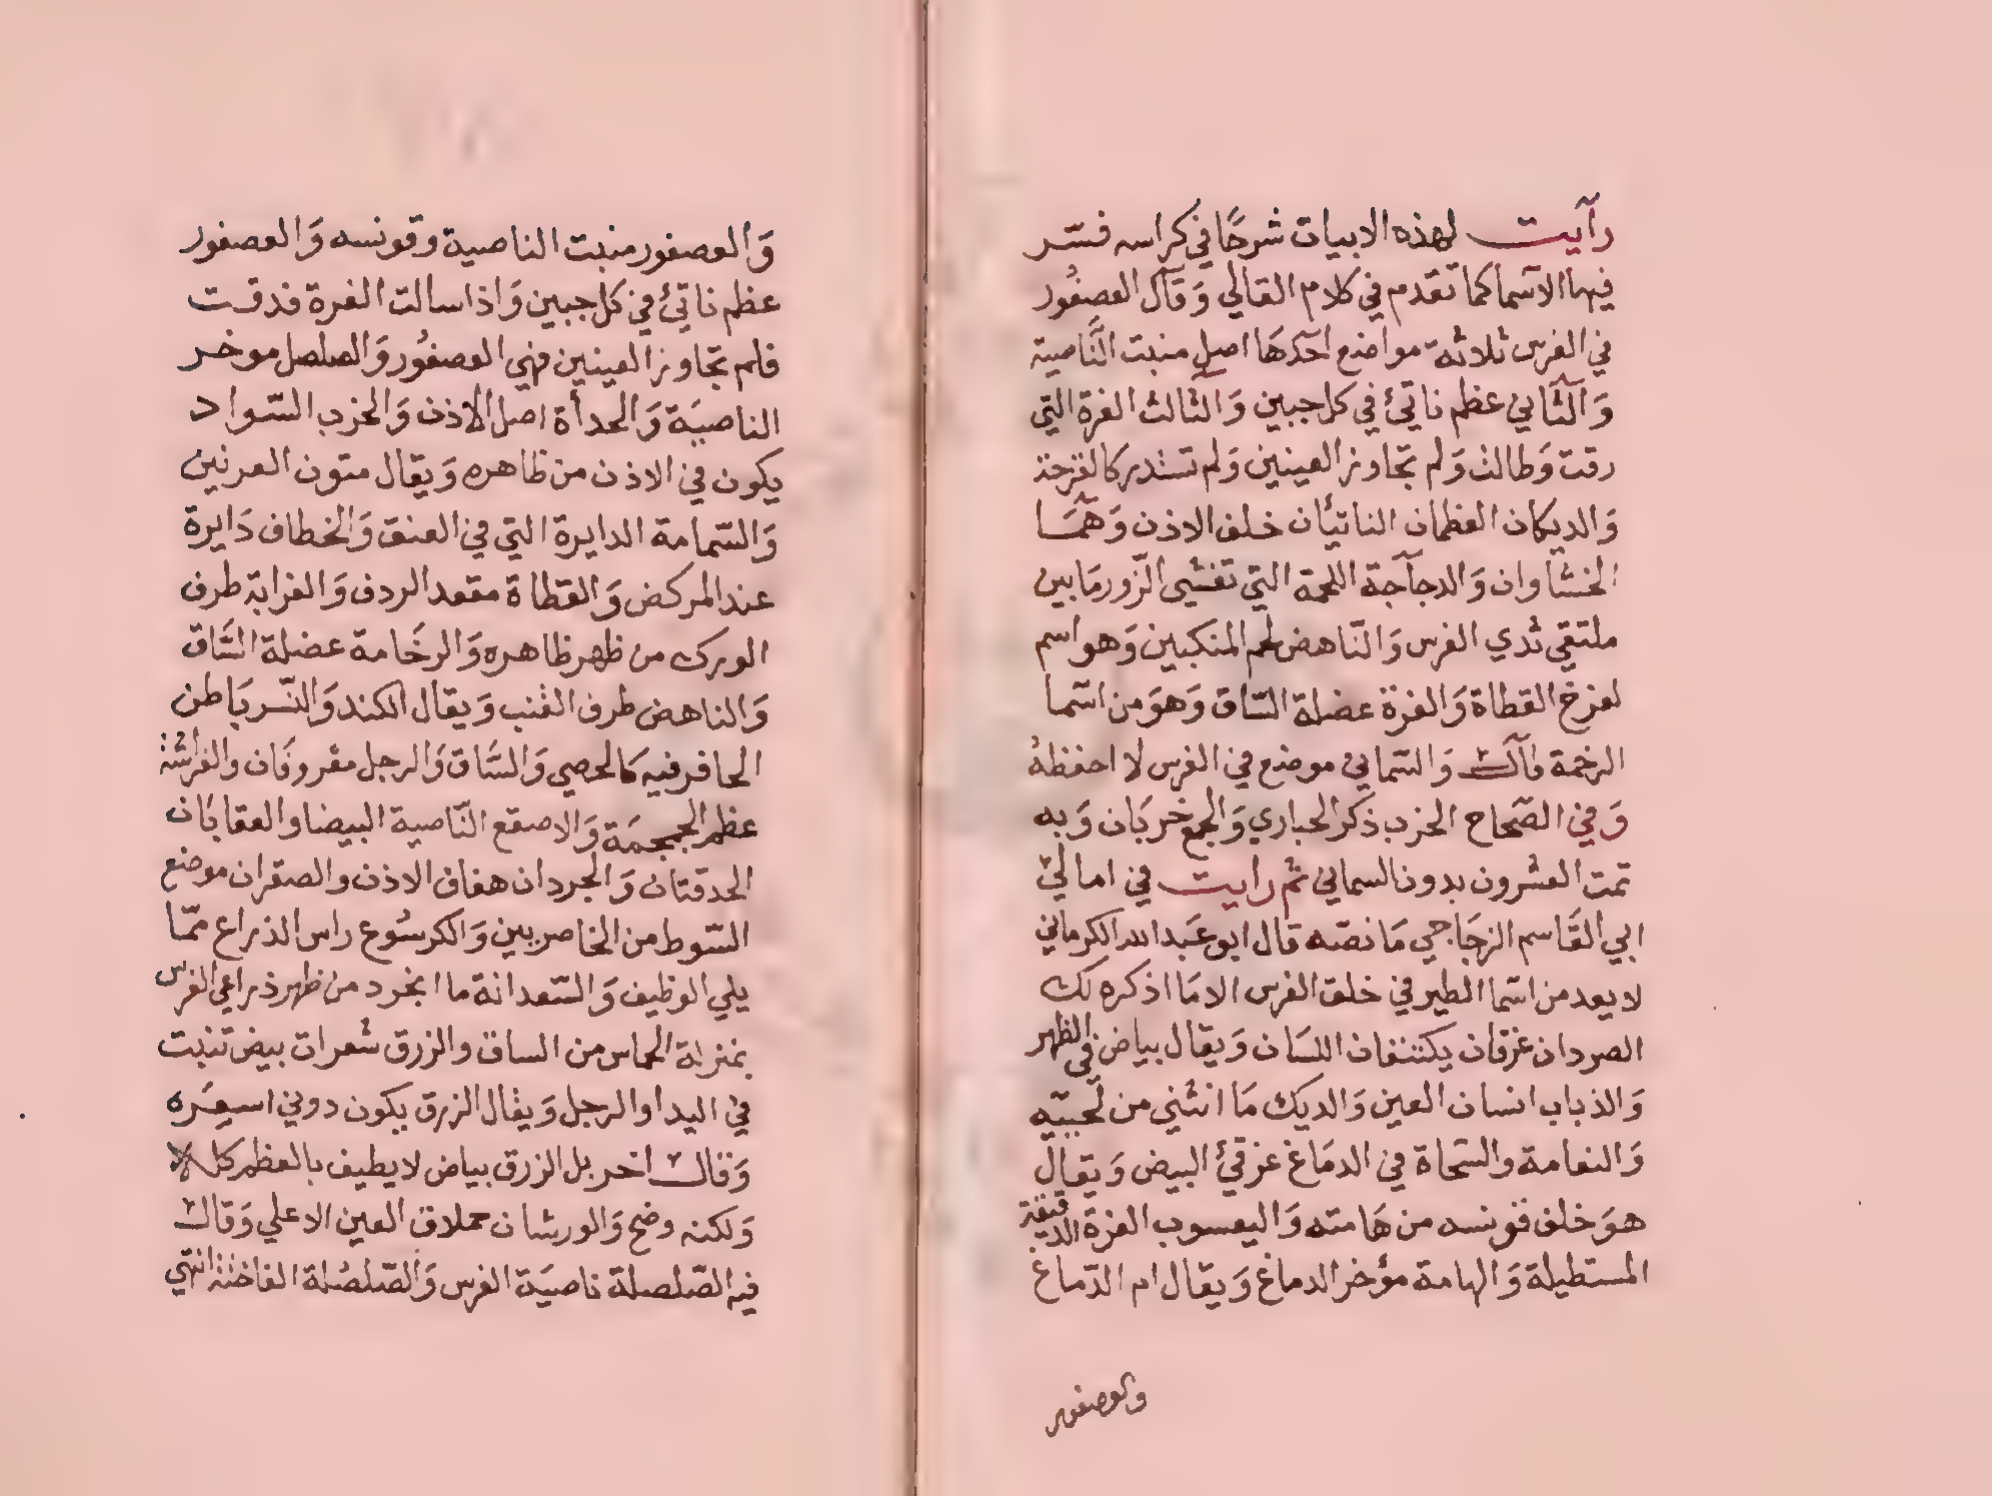 رآيت لهذه الابيات شرحًا في كراسه فسّر
فيها الآسما كما تقدم في كلام القالي وَقآل العصفُور
في الفرس ثلاثه مواضع احَدهَا اصل منبت النَّاصية
وَالثّاني عظم ناتئ في كل جبين وَالثالث الغرة التي
رقت وَطالت وَلم تجاوز العينين وَلم تستدير كالقرحة
وَالديكان العظمان الناتيأن خلف الاذن وَهمَا
الخششاوان وَالدجآجة اللحمة التي تغشي الزّور مَا بين
ملتقي ثدي الفرس وَالنّاهض لحم المنكبين وَهو اسم
لفرخ القطاة وَالغرة عضلة السّاق وَهوَ من اسمآ
الرخمة قآل وَالسّماني موضع في الفرس لا احفظهُ
وَفي الصّحاح الخرب ذكر الحباري وَالجمع خربَان وَبه
تمت العشرون بدون السماني ثم رايت في امالي
ابي القَاسم الزجَاجي مَا نصّه قال ابو عَبد الله الكرماني
لا يعد من اسّما الطير في خلق الفرس الا مَا اذكره لك
الصردان عرقان يكتنفان اللسَان وَيقال بياض في الظهر
وَالذباب انسان العين وَالديك مَا انثني من لحييَه
وَالنعامة والسّحاة في الدمَاغ غرقئ البيض وَيقال
هوَ خلف قونسه من هَامته وَاليعسوب الغرة الدقيقة
المستطيلة وَالهامة مؤخر الدماغ وَيقال ام الدّماغ
والعصفور
وَالعصفور منبت الناصية وقونسه وَالعصفور
عظم ناتئ في كل جبين وَاذا سالت الغرة فدقت
فلم تجاوز العينين فهي العصفُور وَالصلصل موخر
الناصيَة وَالحدأة اصل الاذن وَالخرب السّواد
يكون في الاذن من ظاهره وَيقال متون العرنين
وَالسّمامة الدايرة التي في العنق وَالخطاف دَايرة
عند المركض وَالقطاة مقعد الردف وَالغرابة طرف
الورك من ظهر ظاهره وَالرخَامة عضلة السَّاق
وَالناهض طرف القنب وَيقال الكند وَالنّسر بَاطن
الحافر فيه كالحصي وَالسَّاق وَالرجل معروفَان والفراشة
عظم الجمجمَة وَالاصقع النّاصية البيضا والعقابَان
الحدقتان وَالجردان هفاف الاذن والصقران موضع
السّوط من الخاصربين وَالكرسُوع راس الذراع ممّا
يلي الوظيف وَالسّعدانة ما انجرد من ظهر ذراعي الفرس
بمنزلة الحماس من الساق والزرق شعرات بيض تنبت
في اليد او الرجل وَيقال الزرق يكون دوني اسعَره
وَقال اخر بل الزرق بياض لا يطيف بالعظم كله
وَلكنه وضح وَالورشان حملاق العين الاعلي وَقال
فيه الصّلصلة ناصيَة الفرس وَالصّلصُلة الفاختة انتهي